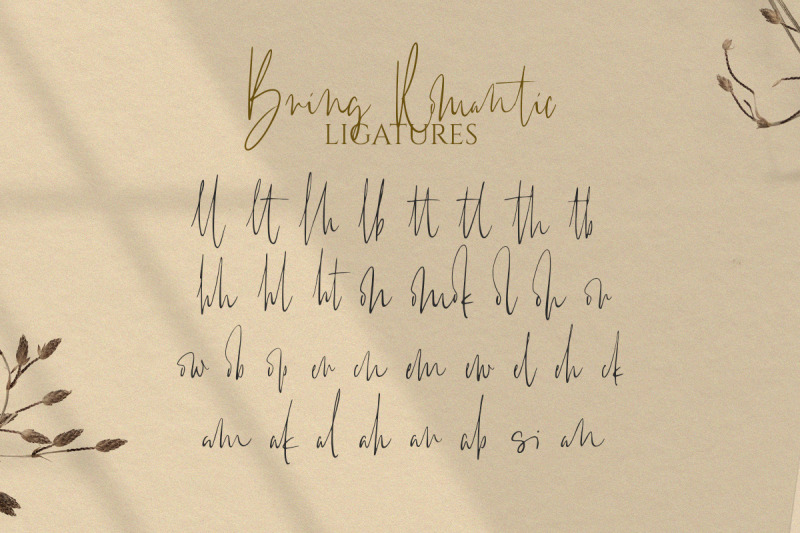 Bring Romantic
LIGATURES
ll lt lh lb tt tl th tb
hh hl ht on om ok ol oh or
ow ob op er en em ew el eh ek
am ak al ah ar ab si an